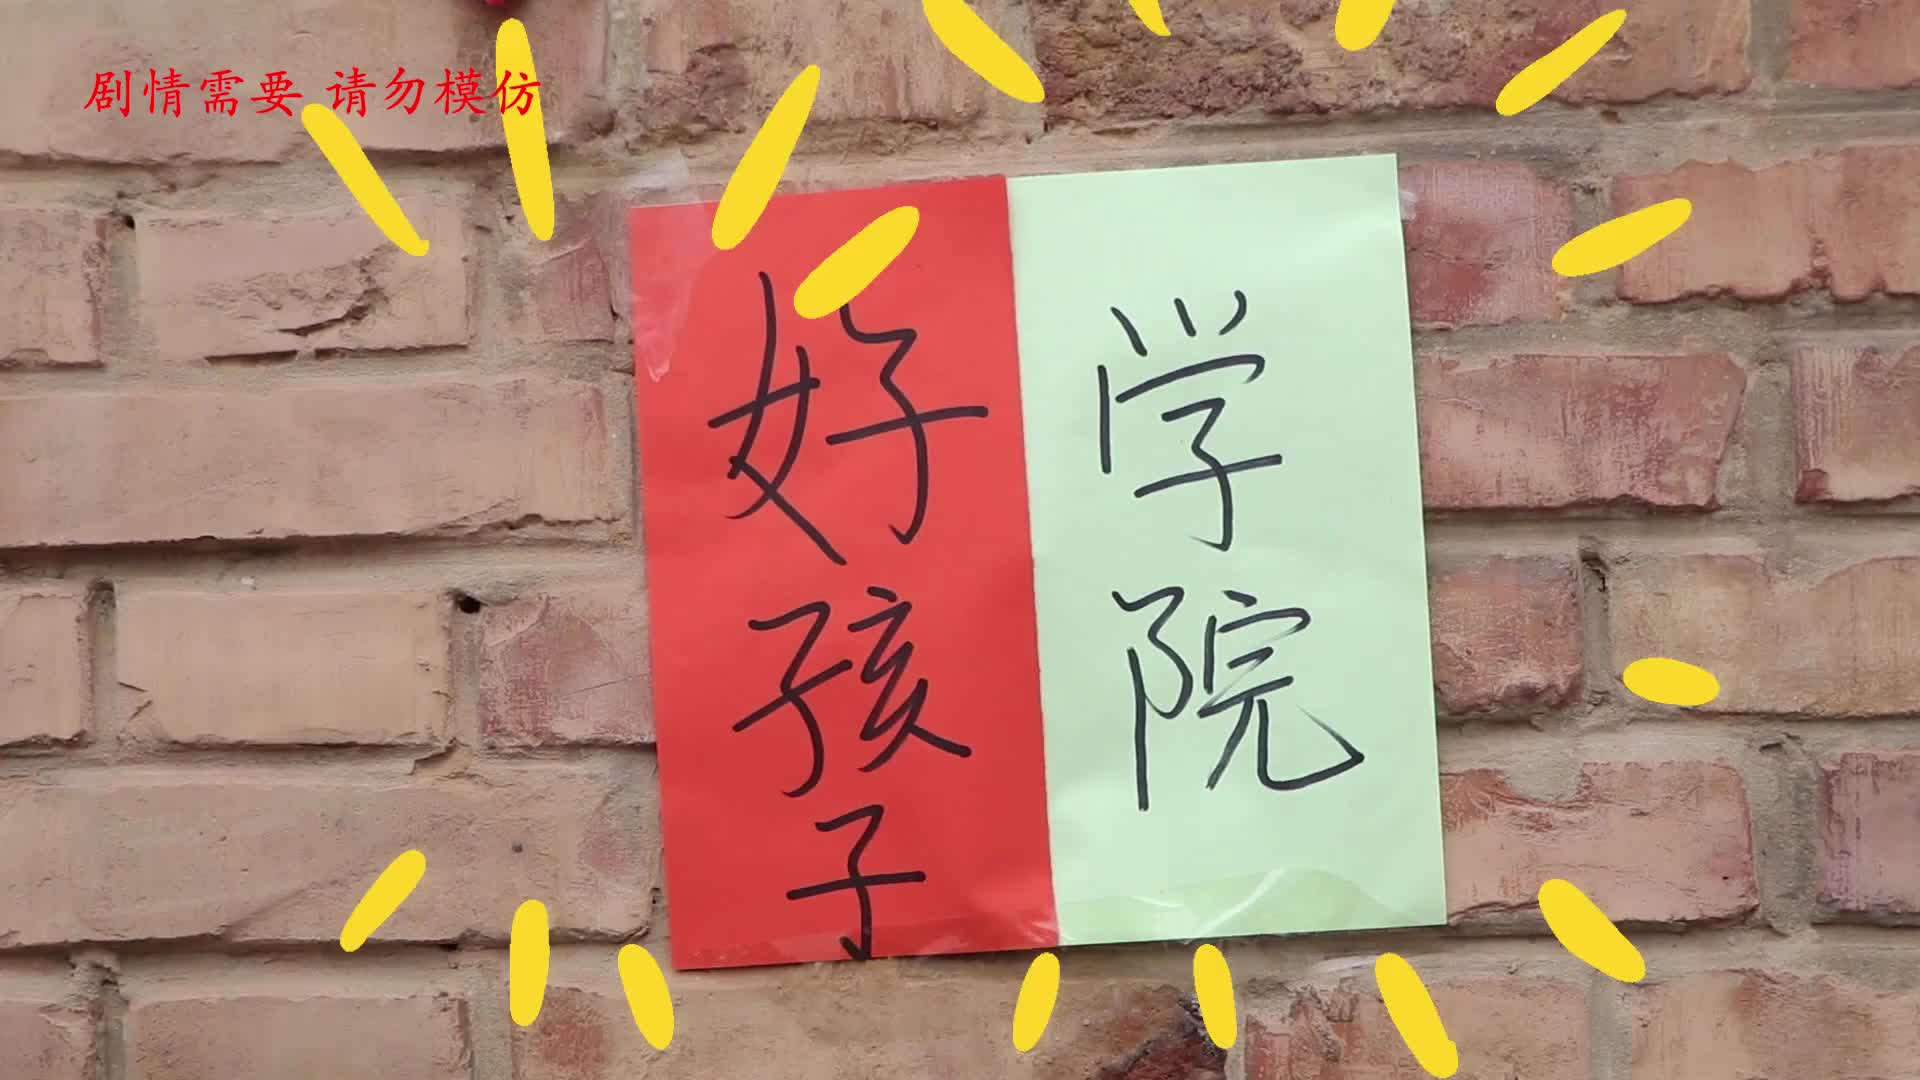 剧情需要 请勿模仿
好孩子
学院